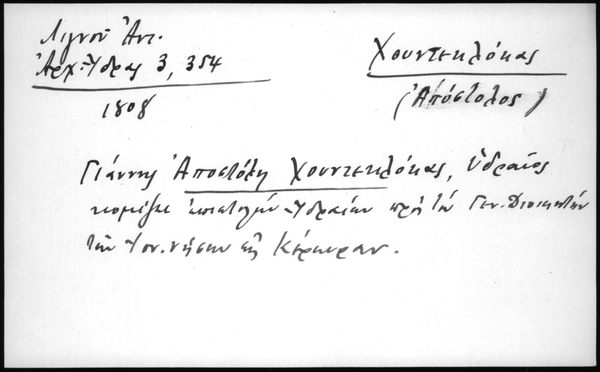 Λιγνοῦ Ἀντ.
Ἀρχ. Ὕδρας 3, 354
1808
Χουντεκλόκας
(Ἀπόστολος)
Γιάννης Ἀποστόλη Χουντεκλόκας, Ὑδραῖος
κομίζει ἐπιστολὴν Ὑδραίων πρὸς τὸν Γεν. Διοικητὴν
τῶν Ἰον. νήσων εἰς Κέρκυραν.